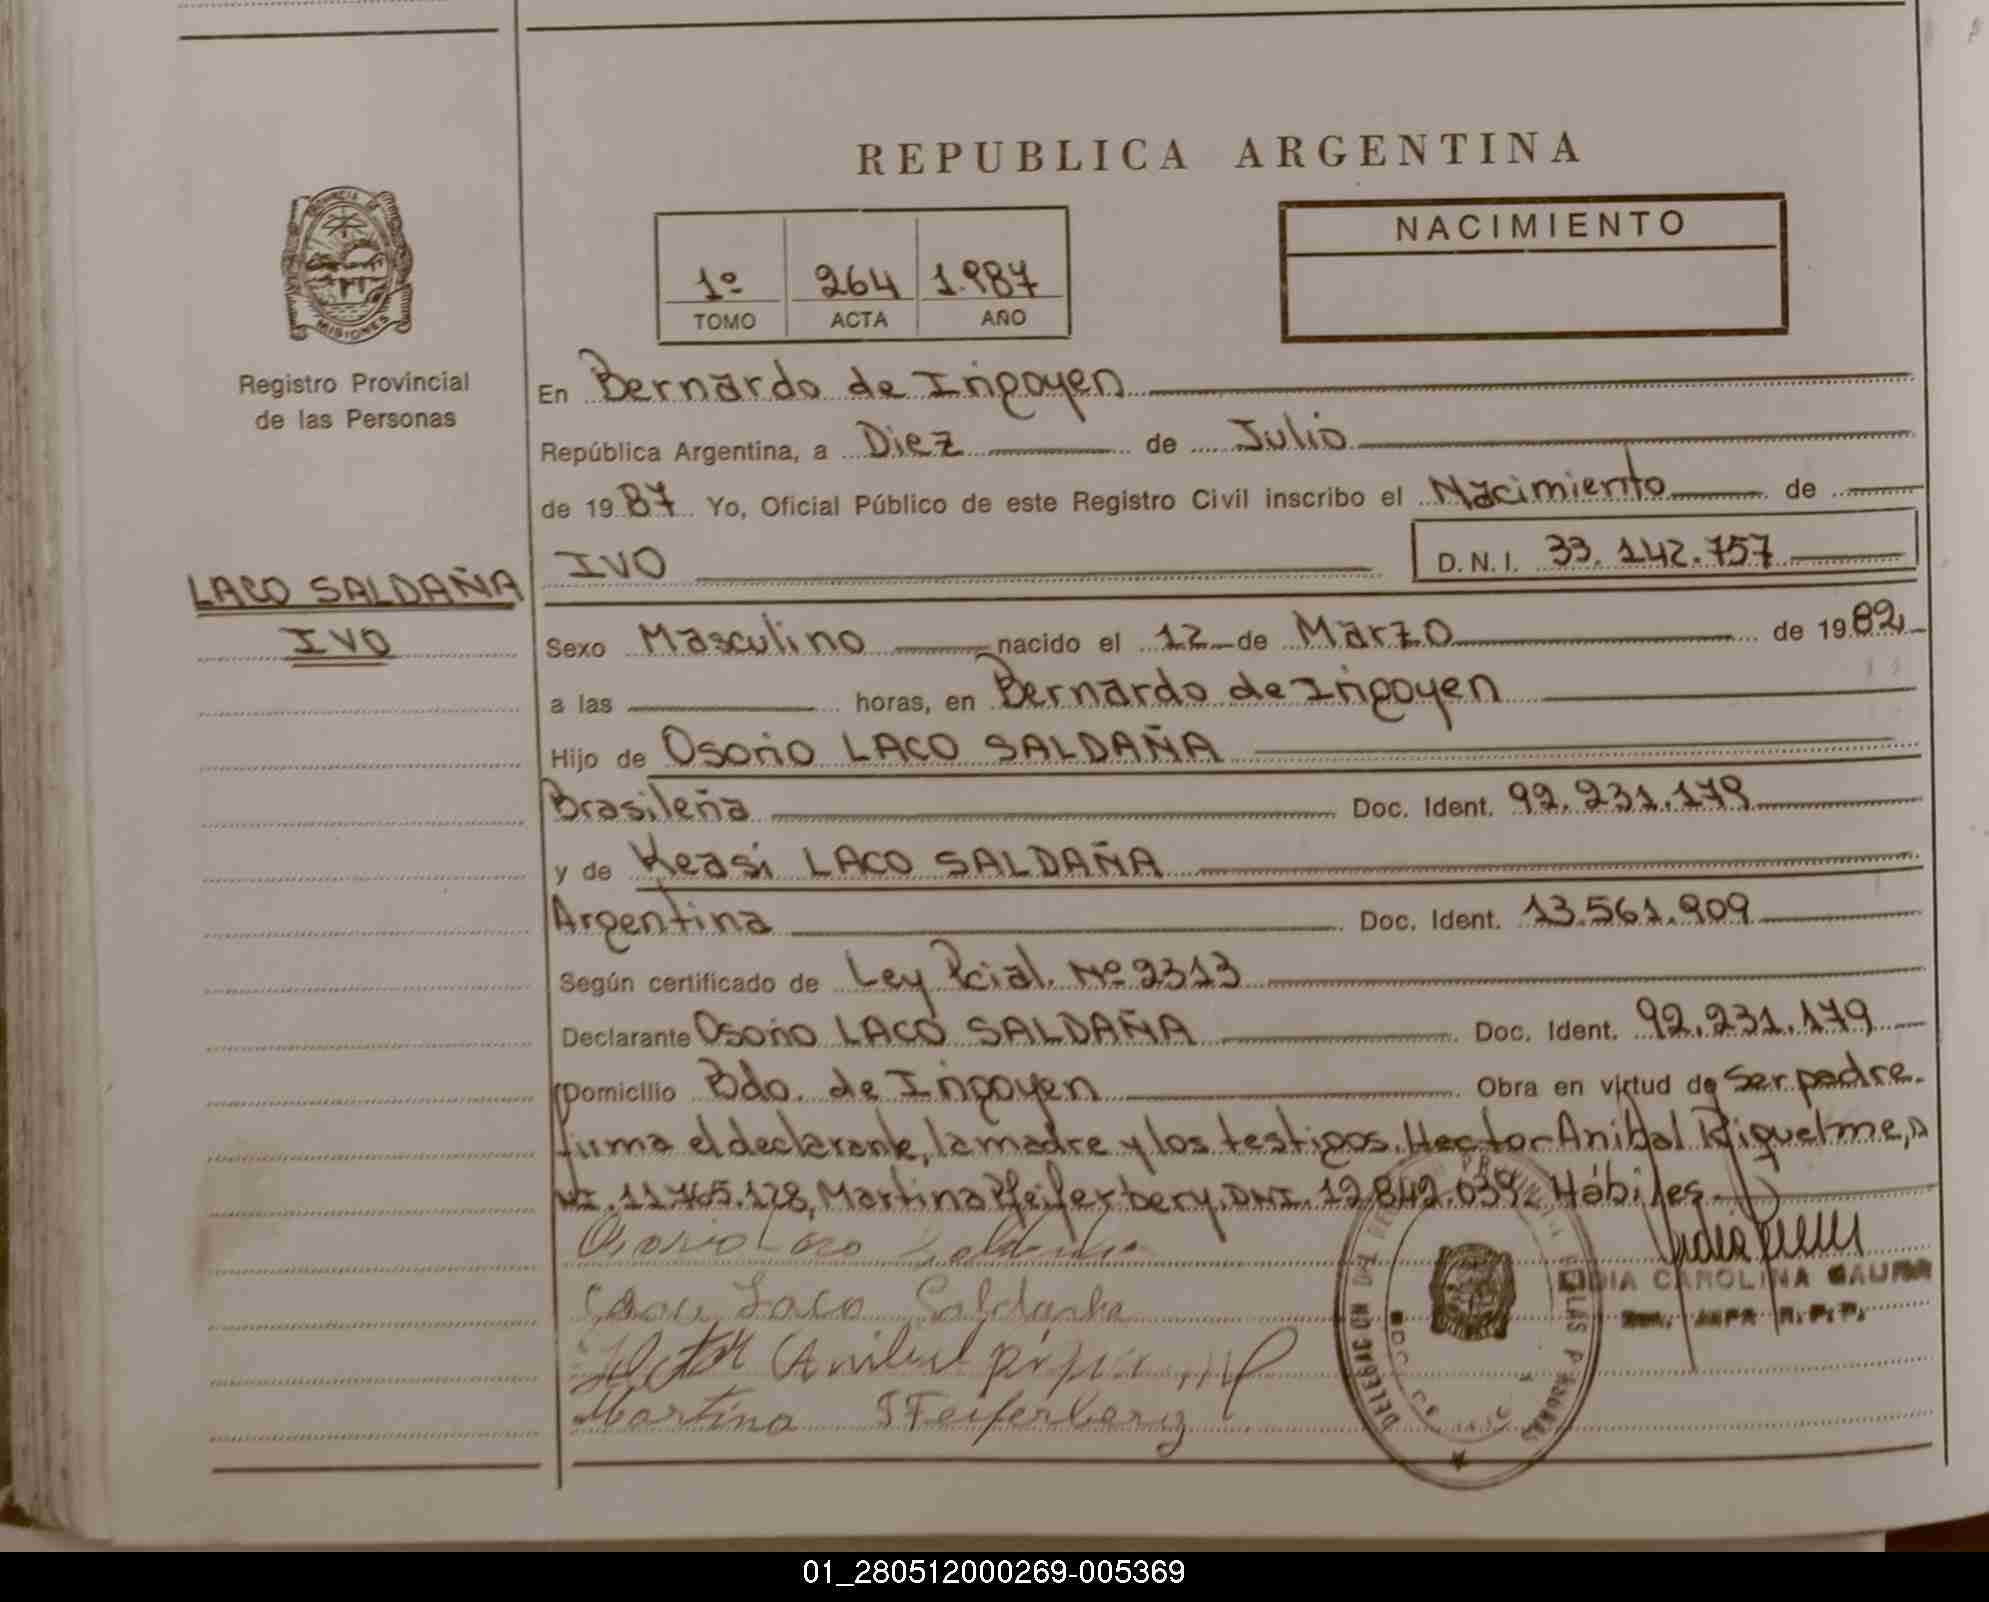 REPUBLICA ARGENTINA
PROVINCIA DE MISIONES
Registro Provincial
de las Personas
1º 264 1.987
TOMO ACTA AÑO
NACIMIENTO
En Bernardo de Irigoyen
República Argentina, a Diez de Julio
de 19 87 Yo, Oficial Público de este Registro Civil inscribo el Nacimiento de
LACO SALDAÑA
IVO
IVO D.N.I. 33.142.757
Sexo Masculino nacido el 12 de Marzo de 1982
a las horas, en Bernardo de Irigoyen
Hijo de Osorio LACO SALDAÑA
Brasileña Doc. Ident. 92.231.179
y de Keasi LACO SALDAÑA
Argentina Doc. Ident. 13.561.909
Según certificado de Ley Pcial. Nº 2313
Declarante Osorio LACO SALDAÑA Doc. Ident. 92.231.179
Domicilio Bdo. de Irigoyen Obra en virtud de Ser padre.
firma el declarante, la madre y los testigos. Hector Anibal Riquelme, D
NI. 11.765.128, Martina Pfeiferbery, DNI. 12.842.039. Hábiles.
Osorio Laco Saldanha
Laco Saldanha
Hector Anibal
Martina Pfeiferberg
LIDIA CAROLINA
01_280512000269-005369